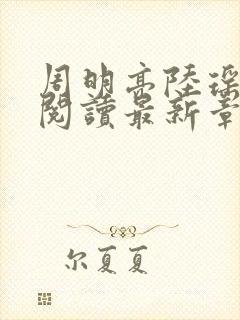 周明高陸深
閱讀最新章
尔夏夏